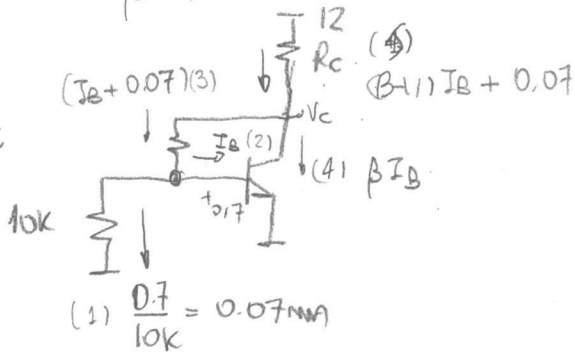 12
Rc
(5)
(β+1) IB + 0,07
(IB + 0.07)(3)
Vc
IB (2)
(4) βIB
+0,7
10K
(1) 0.7/10K = 0.07mA